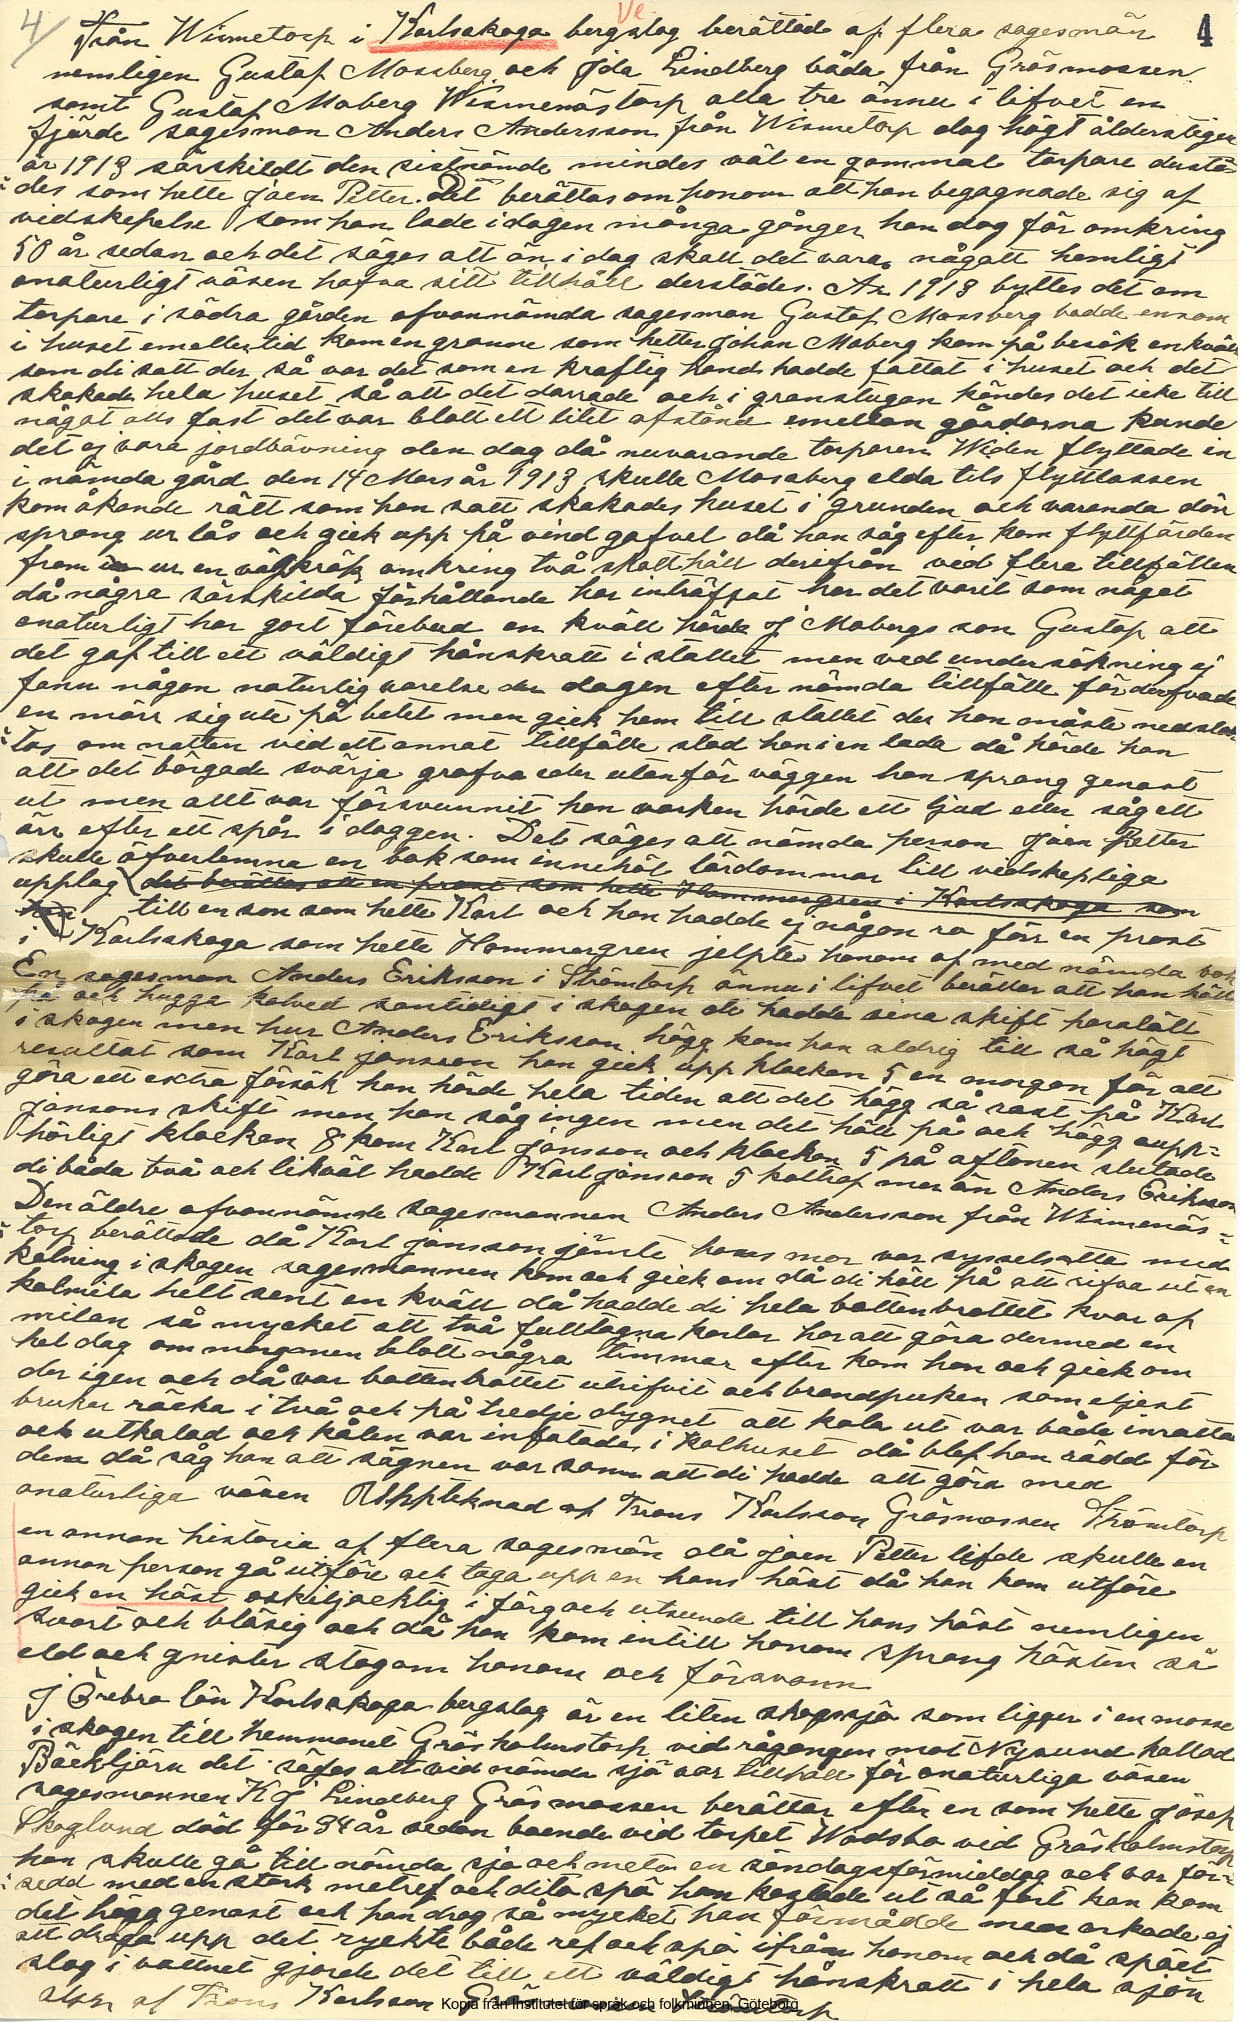 4/ Ve. 4
Från Wismetorp i Karlskoga bergslag berättad af flera sagesmän
nemligen Gustaf Mossberg och Ida Lindberg båda från Gräsmossen
samt Gustaf Moberg Wismenästorp alla tre ännu i lifvet en
fjärde sagesman Anders Andersson från Wismetorp dog högt ålderstigen
år 1913 särskildt den sistnämde mindes väl en gammal torpare dustä-
des som hette Joen Petter. Det berättas om honom att han begagnade sig af
vidskepelse som han lade i dagen många gånger han dog för omkring
50 år sedan och det säges att än i dag skall det vara något hemligt
onaturligt väsen hafva sitt tillhåll derstädes. År 1913 byttes det om
torpare i södra gården ofvannämda sagesman Gustaf Mossberg bodde ensam
i huset emellertid kom en granne som hetter Johan Moberg kom på besök en kväll
som di satt der så var det som en kraftig hand hadde fattat i huset och det
skakade hela huset så att det darrade och i granstugan kändes det icke till
något alls fast det var blott ett litet afstånd emellan gårdarna kunde
det ej vara jordbävning den dag då nuvarande torparen Widen flyttade in
i nämda gård den 14 Mars år 1913 skulle Mossberg elda tils flyttlassen
kom åkande rätt som han satt skakades huset i grunden och varenda dörr
sprang ur lås och gick upp på vind gafvel då han såg efter kom flyttfärden
fram ur en vägkrök omkring två skotthåll derifrån vid flera tillfällen
då några särskilda förhållande har inträffat har det varit som något
onaturligt har gort förebud en kväll hörde J Mobergs son Gustaf att
det gaf till ett väldigt hånskratt i stallet men ved undersökning ej
fann någon naturlig varelse der dagen efter nämda tillfälle förderfvade
en märr sig ute på betet men gick hem till stallet der hon måste nedslak-
tas om natten vid ett annat tillfälle stod han i en lada då hörde han
att det börgade svärja grofva eder utanför väggen han sprang genast
ut men allt var försvunnit han varken hörde ett ljud eller såg ett
ärr efter ett spår i daggen. Det säges att nämda person Joen Petter
skulle öfverlemna en bok som innehöl lärdommar till vidskepliga
upplag det berättas att en prost som hette Hammargren i Karlskoga som
till en son som hette Karl och han hadde ej någon ro förr en prost
i Karlskoga som hette Hammargren jelpte honom af med nämda bok
En sagesman Anders Eriksson i Strömtorp ännu i lifvet berättar att han höll
på och hugga kolved samtidigt i skogen di hadde sina skift paralätt
i skogen men hur Anders Eriksson högg kom han aldrig till så högt
resultat som Karl Jonsson han gick upp klockan 5 en morgon för att
göra ett extra försök han hörde hela tiden att det högg så rast på Karl
Jonsons skift men han såg ingen men det höll på och högg oupp-
hörligt klockan 8 kom Karl Jonsson och klockan 5 på aftonen slutade
di båda två och likväl hadde Karl Jonsson 5 koltraf mer än Anders Eriksson
Den äldre ofvannämde sagesmannen Anders Andersson från Wismenäs-
torp berättade då Karl Jonsson jämte hans mor var sysselsatta med
kolning i skogen sagesmannen kom och gick om då di höll på att rifva ut en
kolmila helt sent en kväll då hadde di hela bottenbrottet kvar af
milan så mycket att två fulltagna karlar har att göra dermed en
hel dag om morgonen blott några timmar efter kom han och gick om
der igen och då var bottenbrottet utrifvit och brandpuken som eljest
bruker räcka i två och på tredje dygnet att kola ut var både inrattad
och utkolad och kolen var infatade i kolhuset då blef han rädd för
dem då såg han att sägnen var sann att di hadde att göra med
onaturliga väsen Uppteknad af Frans Karlsson Gräsmossen Strömtorp
en annan historia af flera sagesmän då Joen Petter lefde skulle en
annan person gå utföre och taga upp en hans häst då han kom utföre
gick en häst oskiljacktig i färg och utseende till hans häst nemligen
svart och bläsig och då han kom intill honom sprang hästen så
eld och gnister stog om honom och försvann
I Örebro län Karlskoga bergslag är en liten skogssjö som ligger i en mosse
i skogen till hemmanet Gräsholmstorp vid rågången mot Nysund kallad
Bäcktjärn det säges att vid nämda sjö var tillhåll för onaturliga väsen
sagesmannen K J Lindberg Gräsmossen berättar efter en som hette Josep
Skoglund död för 34 år sedan boende vid torpet Wadsbo vid Gräsholmstorp
han skulle gå till nämda sjö och meta en söndagsförmiddag och var för-
sedd med en stark metref och dito spö han kastade ut så fort han kom
det högg genast och han drog så mycket han förmådde men orkade ej
att draga upp det ryckte både ref och spö ifrån honom och då spöet
slog i vattnet gjorde det till ett väldigt hånskratt i hela sjön
af Frans Karlson Gräsmossen Strömtorp
Kopia från Institutet för språk och folkminnen, Göteborg